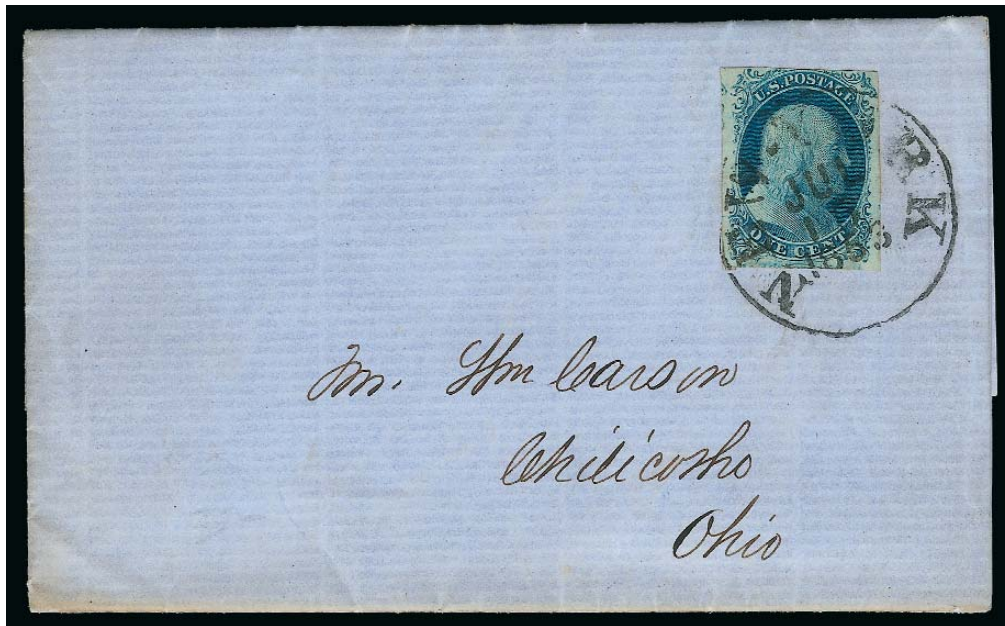 U.S.POSTAGE
ONE CENT
NEW YORK
JUL
1853
Mr. Wm Carson
Chilicosho
Ohio